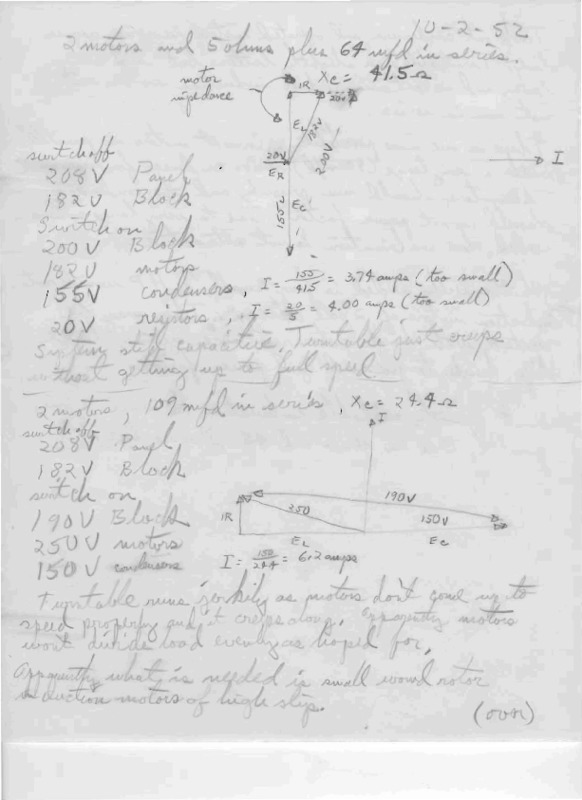 10-2-52
2 motors and 5 ohms plus 64 mfd in series.
Xc = 41.5Ω
motor
impedance
IR
20V
EL
182V
200V
20V
ER
I
155V
EC
switch off
208V Panel
182V Block
Switch on
200V Block
182V motors
155V condensers, I = 155/41.5 = 3.74 amps (too small)
20V resistors, I = 20/5 = 4.00 amps (too small)
System still capacitive. Turntable just creeps
without getting up to full speed
2 motors, 109 mfd in series, Xc = 24.4Ω
switch off
208V Panel
182V Block
switch on
190V Block
250V motors
150V condensers
I
190V
IR
250
150V
EL
EC
I = 150/24.4 = 6.2 amps
Turntable runs jerkily as motors don't come up to
speed properly and it creeps along. Apparently motors
won't divide load evenly as hoped for.
Apparently what is needed is small wound rotor
induction motors of high slip.
(over)